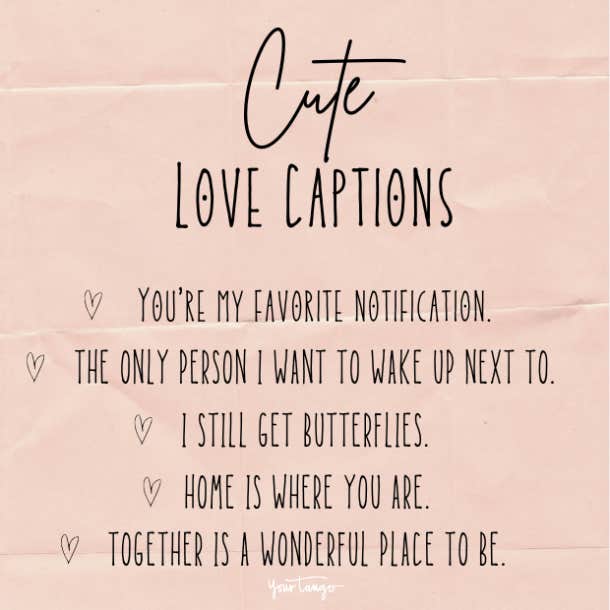 Cute
LOVE CAPTIONS
YOU'RE MY FAVORITE NOTIFICATION.
THE ONLY PERSON I WANT TO WAKE UP NEXT TO.
I STILL GET BUTTERFLIES.
HOME IS WHERE YOU ARE.
TOGETHER IS A WONDERFUL PLACE TO BE.
YourTango